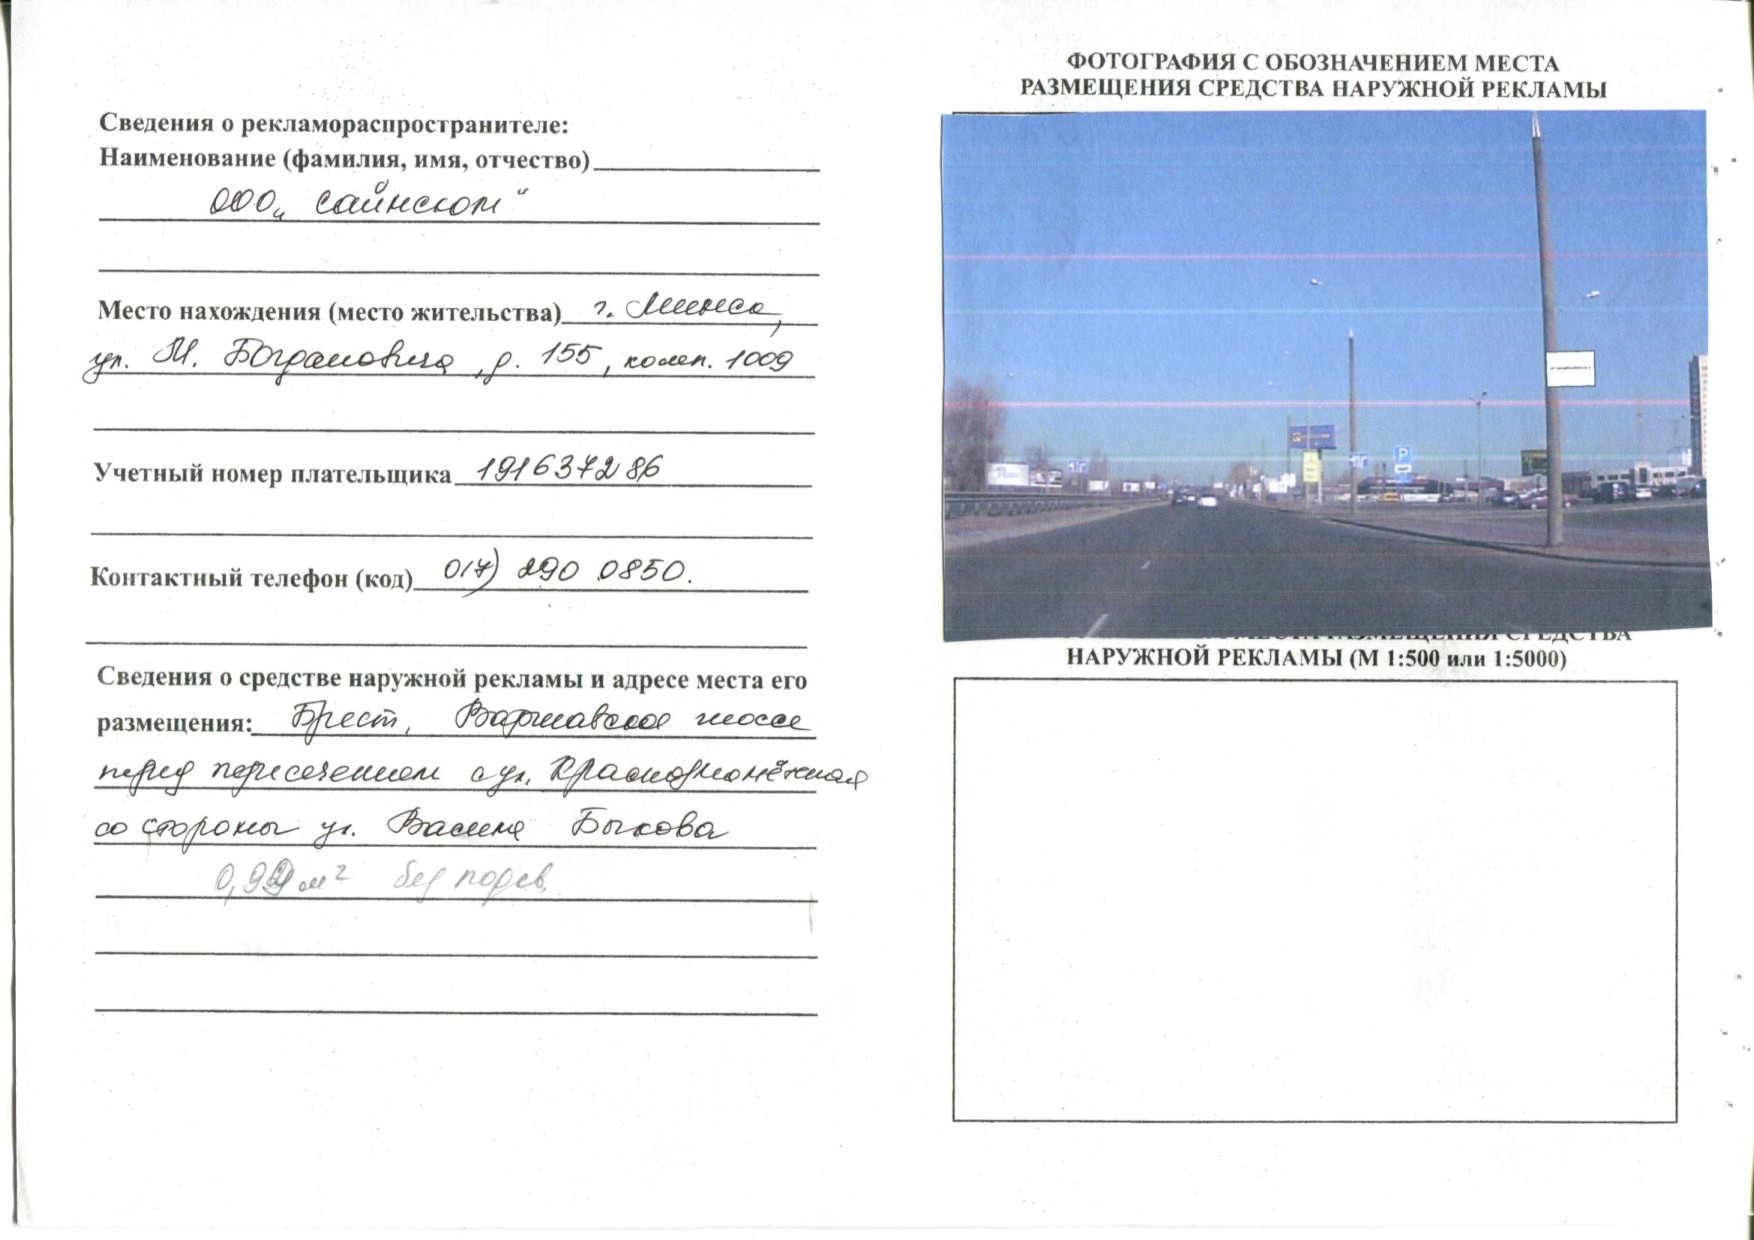 Сведения о рекламораспространителе:
Наименование (фамилия, имя, отчество)
ООО „Сайнском“
Место нахождения (место жительства) г. Минск,
ул. М. Богдановича, д. 155, комн. 1009
Учетный номер плательщика 191637286
Контактный телефон (код) 017) 290 0850.
Сведения о средстве наружной рекламы и адресе места его
размещения: Брест, Варшавское шоссе
перед пересечением с ул. Краснознамённая
со стороны ул. Василя Быкова
м² без подсв.
ФОТОГРАФИЯ С ОБОЗНАЧЕНИЕМ МЕСТА
РАЗМЕЩЕНИЯ СРЕДСТВА НАРУЖНОЙ РЕКЛАМЫ
P
МЕСТА РАЗМЕЩЕНИЯ СРЕДСТВА
НАРУЖНОЙ РЕКЛАМЫ (М 1:500 или 1:5000)